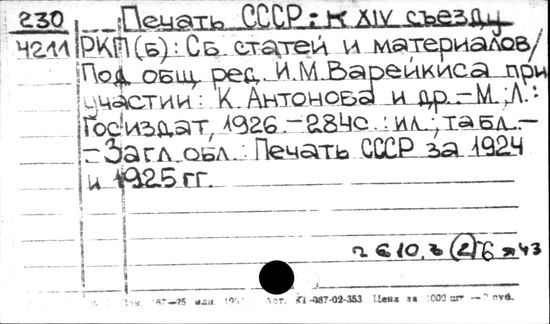 230 Печать СССР: К XIV съезду
4211 РКП(б): Сб. статей и материалов/
Под общ. ред. И.М. Варейкиса при
участии: К. Антонова и др. – М.; Л.:
Госиздат, 1926. – 284с.: ил.; табл. –
– Загл. обл.: Печать СССР за 1924
и 1925 гг.
2 6 10, 3 (2)
67—25 КТ-087-02-353 Цена за 1000 шт